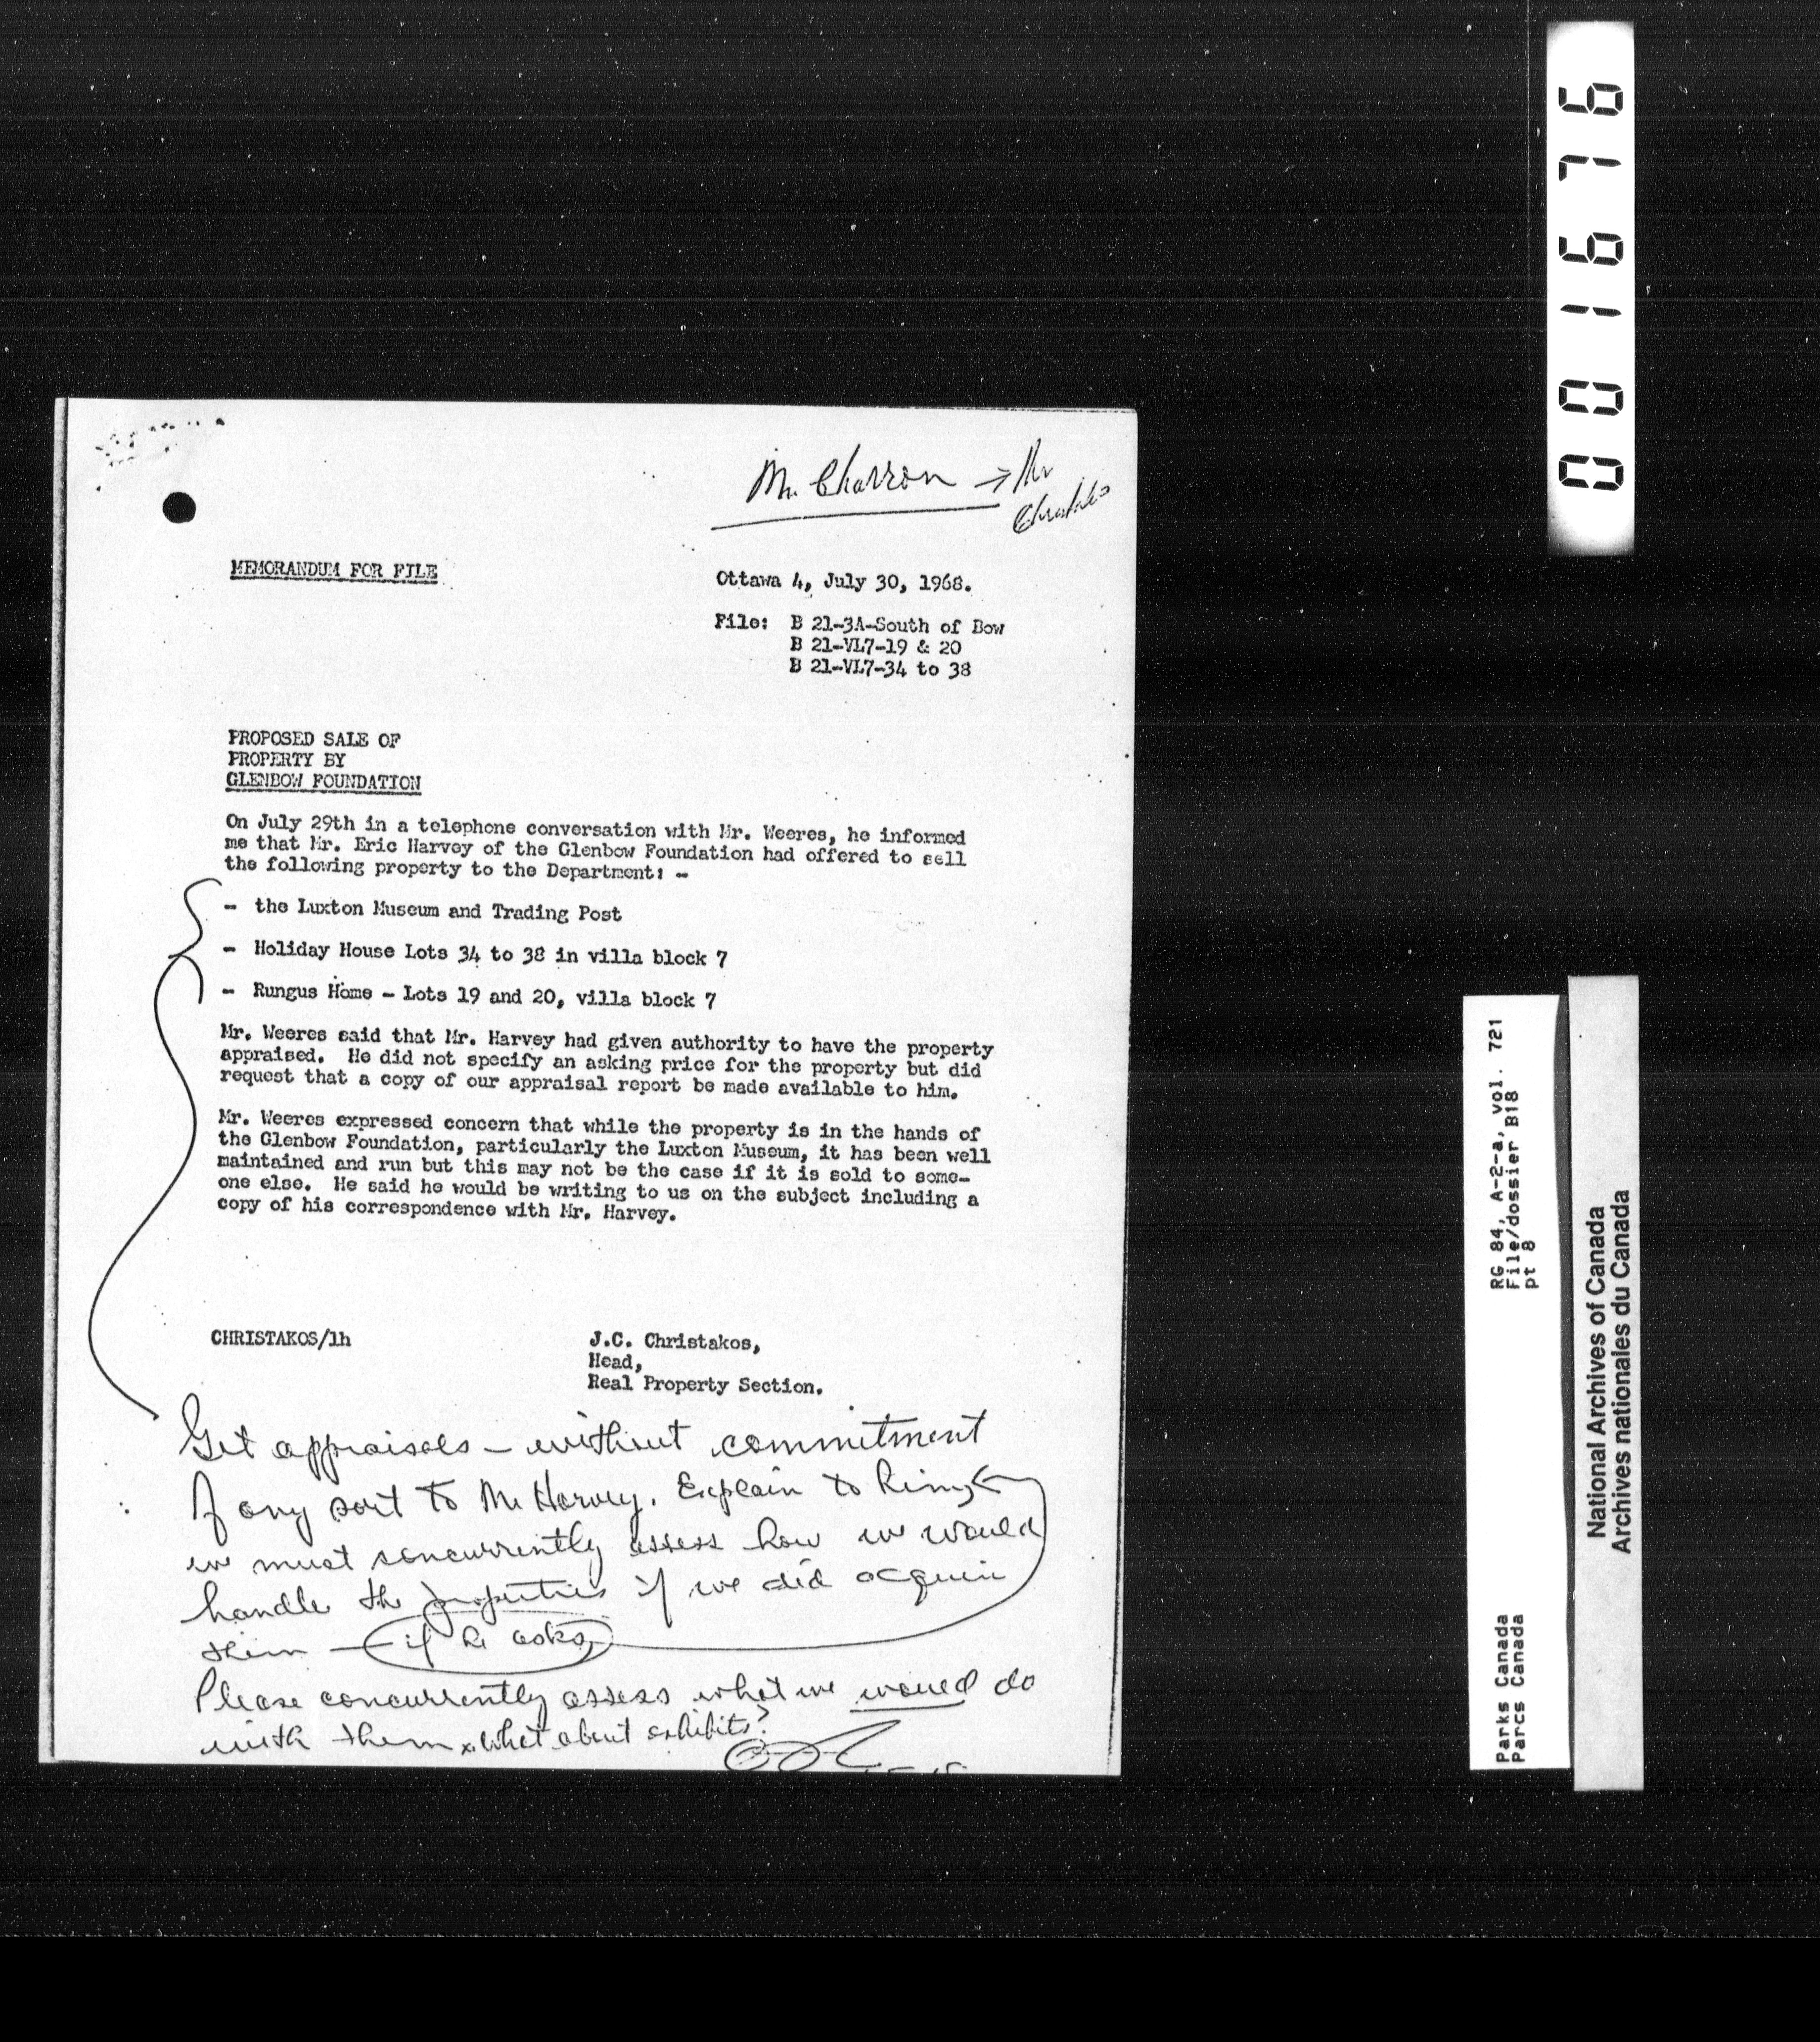 001676
Mr. Charron → Mr
Christakos
MEMORANDUM FOR FILE
Ottawa 4, July 30, 1968.
File: B 21-3A-South of Bow
B 21-VL7-19 & 20
B 21-VL7-34 to 38
PROPOSED SALE OF
PROPERTY BY
GLENBOW FOUNDATION
On July 29th in a telephone conversation with Mr. Weeres, he informed
me that Mr. Eric Harvey of the Glenbow Foundation had offered to sell
the following property to the Department: -
- the Luxton Museum and Trading Post
- Holiday House Lots 34 to 38 in villa block 7
- Rungus Home - Lots 19 and 20, villa block 7
Mr. Weeres said that Mr. Harvey had given authority to have the property
appraised. He did not specify an asking price for the property but did
request that a copy of our appraisal report be made available to him.
Mr. Weeres expressed concern that while the property is in the hands of
the Glenbow Foundation, particularly the Luxton Museum, it has been well
maintained and run but this may not be the case if it is sold to some-
one else. He said he would be writing to us on the subject including a
copy of his correspondence with Mr. Harvey.
CHRISTAKOS/lh
J.C. Christakos,
Head,
Real Property Section.
Get appraisals - without commitment
of any sort to Mr Harvey. Explain to him,
we must concurrently assess how we would
handle the properties if we did acquire
them - if he asks,
Please concurrently assess what we would do
with them. What about exhibits?
RG 84, A-2-a, vol. 721
File/dossier B18
pt 8
Parks Canada
Parcs Canada
National Archives of Canada
Archives nationales du Canada